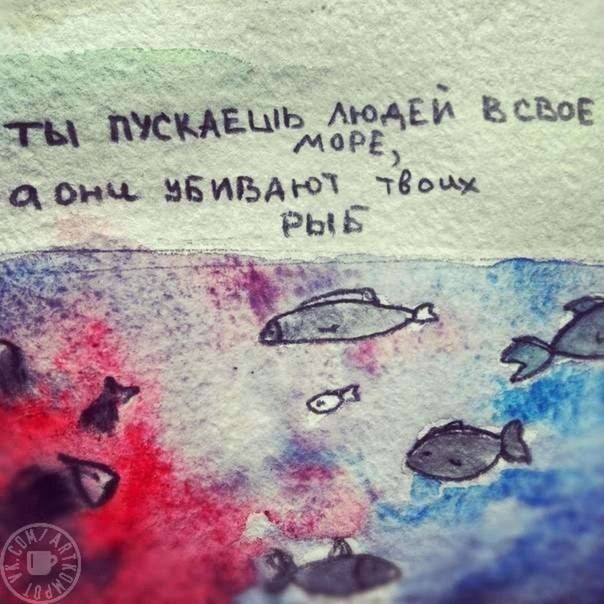 ТЫ ПУСКАЕШЬ ЛЮДЕЙ В СВОЕ
МОРЕ,
а они УБИВАЮТ твоих
РЫБ
VK.COM/ARTKOMPOT